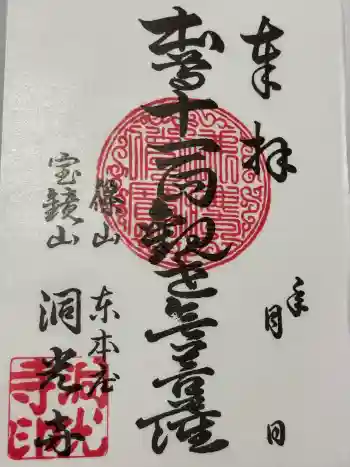 奉拝　年　月　日
本尊十一面観世音菩薩
篠山　东本庄
宝鏡山　洞光寺
洞光寺印